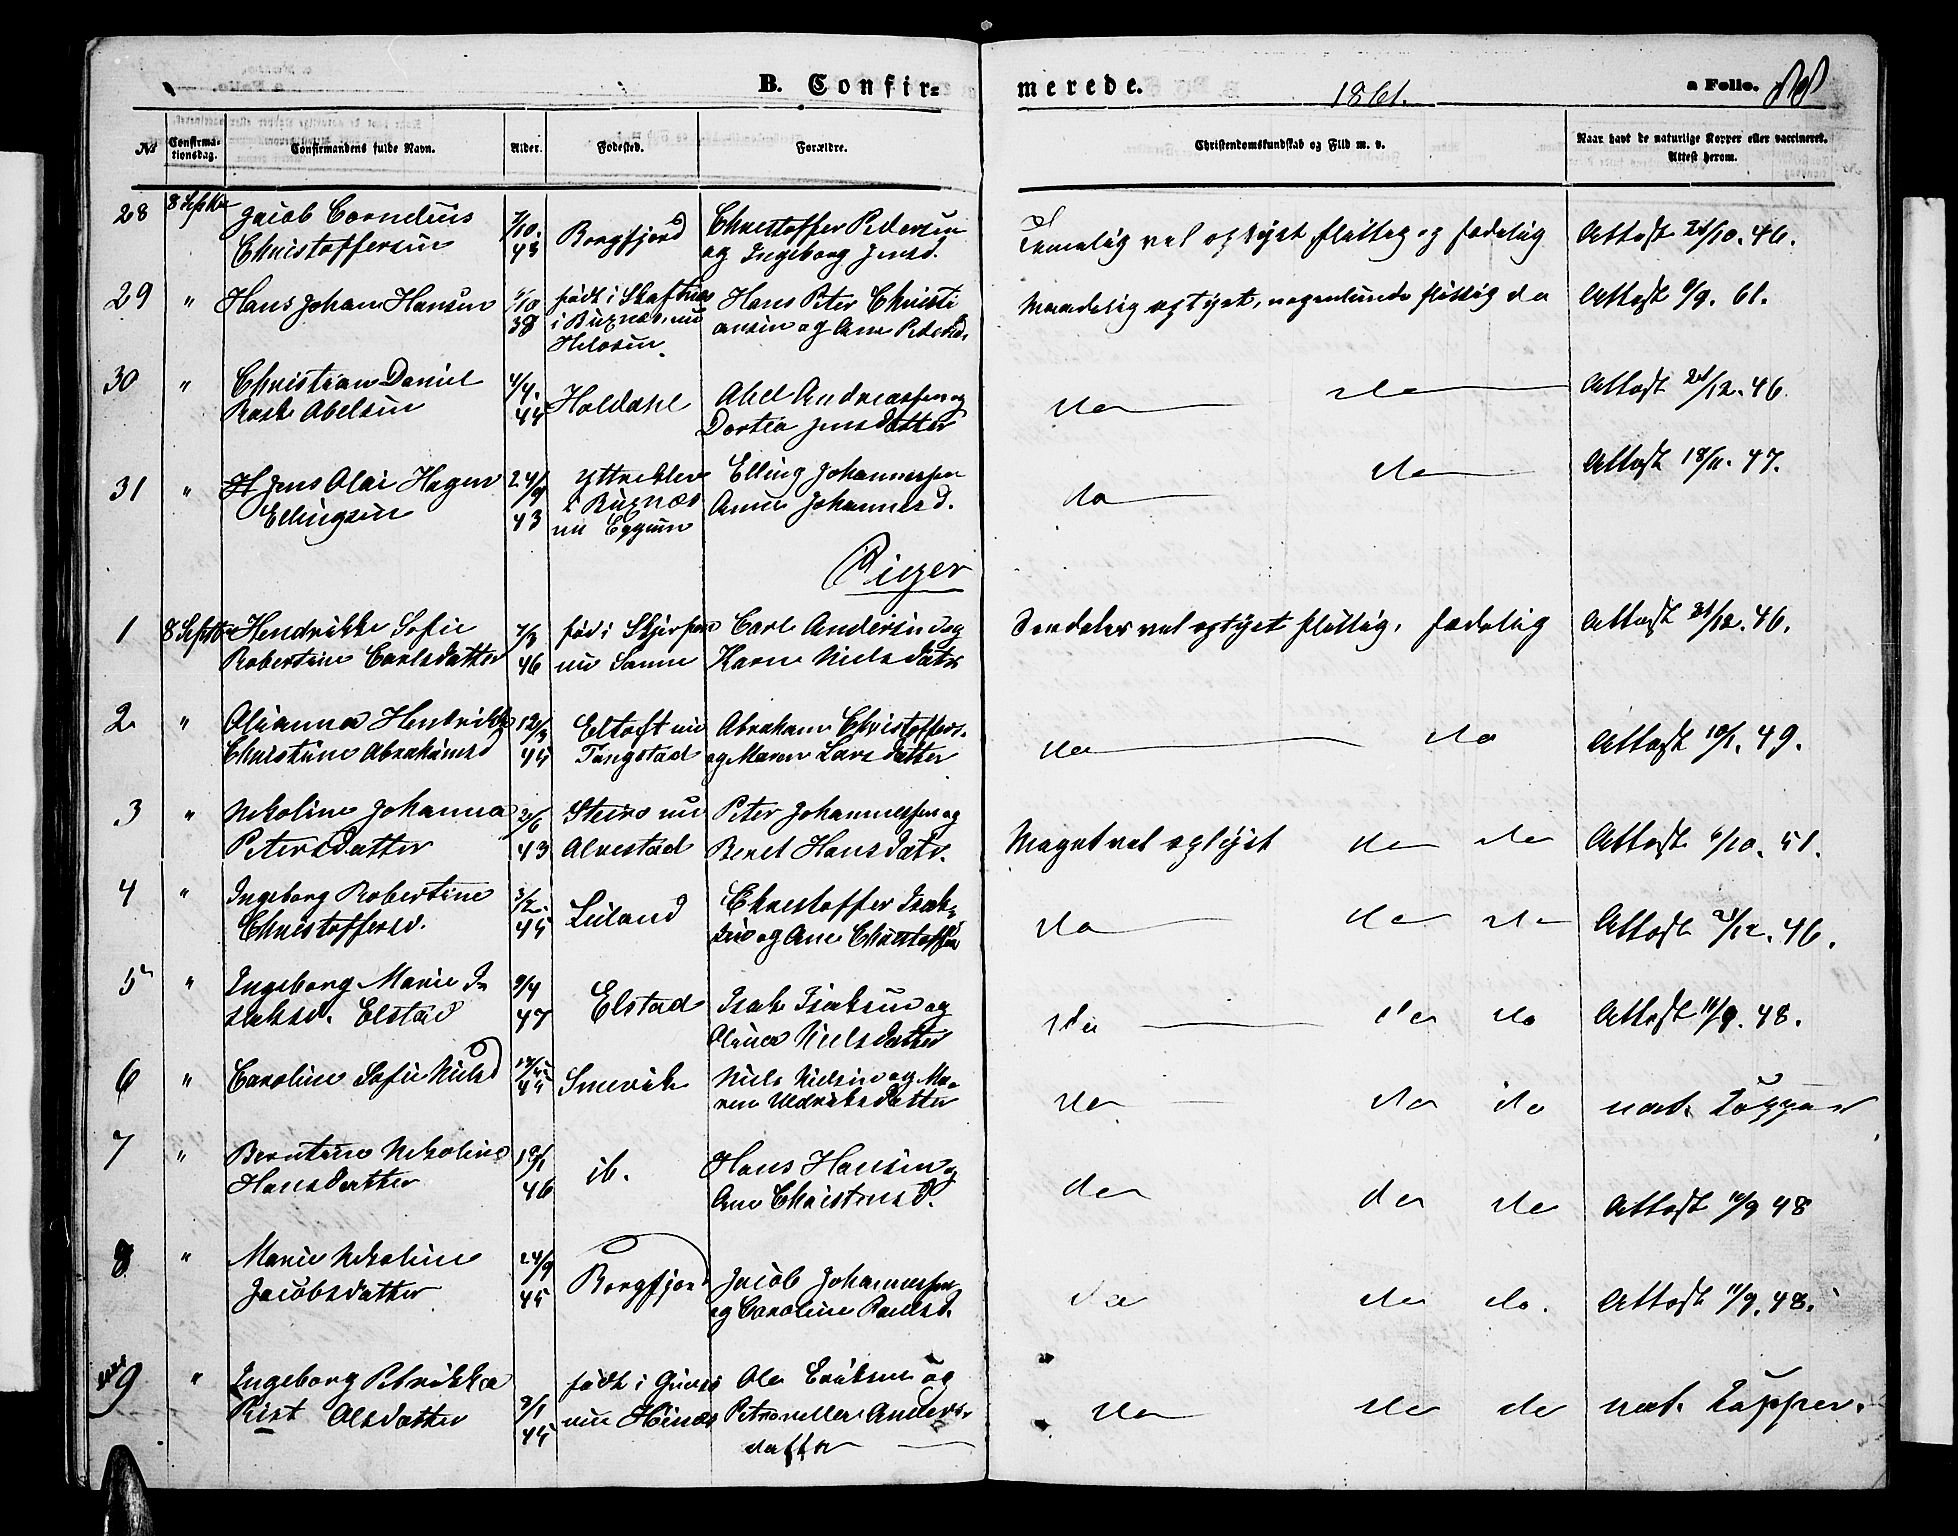 B. Confir=
merede.
1861.
a Folio. 88
No
Confirma-
tionsdag.
Confirmandens fulde Navn.
Alder.
Fødested.
Forældre.
Christendomskundskab og Flid m. v.
Naar havt de naturlige Kopper eller vaccineret.
Attest herom.
28 8 Septbr Jacob Cornelius Christoffersen 7/10. 43 Borgfjord Christoffer Pedersen og Ingeborg Jensd. Temelig vel oplyst, flittig og sædelig Attest 21/10. 46.
29 " Hans Johan Hansen 6/10 38 født i i Buxnæs, nu Hans Peter Christiansen og Ane Maadelig oplyst, nogenlunde flittig do Attest 6/9. 61.
30 " Christian Daniel Rask Abelsen 4/4. 44 Holdahl Abel Andreassen og Dortea Jensdatter do do Attest 21/12. 46.
31 " Jens Olai Hagen Ellingsen 24/9 43 i Buxnæs nu Eggum Elling Johannessen Anne Johannesd. do do Attest 18/11. 47.
Piger
1 8 Septbr Hendrikke Sofie Robertine Carlsdatter 7/3 46 fød i nu Sann Carl Andersen og Karen Nielsdatr Særdeles vel oplyst flittig, sædelig Attest 21/12. 46.
2 " Olianna Hendrikke Christine Abrahamsd 12/3 45 Eltoft nu Tangstad Abraham Christoffers. og Maren Larsdatter do do Attest 10/1. 49.
3 " Nekoline Johanna Petersdatter 2/6 43 Steiro nu Alvestad Peter Johannessen og Beret Hansdatr. Meget vel oplyst do do Attest 6/10. 51.
4 " Ingeborg Robertine Christoffersd. 3/2. 45 Leiland Christoffer Isaksen og Ane do do do Attest 21/12. 46.
5 " Ingeborg Marie Isaksd. Elstad 9/4 47 Elstad Isak Isaksen og Nielsdatter do do do Attest 11/9. 48.
6 " Caroline Sofie Nielsd 45 Smervik Niels Nielsen og Maren do do do nat. Kopper
7 " Berntine Nekoline Hansdatter 12/1 46 ib. Hans Hansen og Ane Christensd. do do do Attest 11/9 48
8 " Marie Nekoline Jacobsdatter 24/9 45 Borgfjord Jacob Johannessen og Caroline Paulsd. do do do. Attest 11/9. 48.
9 " Ingeborg Petrikka Rist Olsdatter 9/1 45 født i nu Ole Eriksen og Petronelle Andersdatter do do do nat. Kopper.